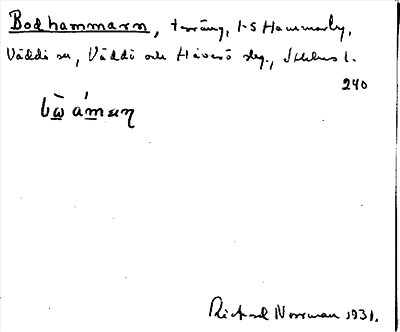 Bodhammarn, terräng, 1-5 Hammarby,
Väddö sn, Väddö och Häverö skg., Sthlms l.
240
bὼ ámaη
Richard Norrman 1931.